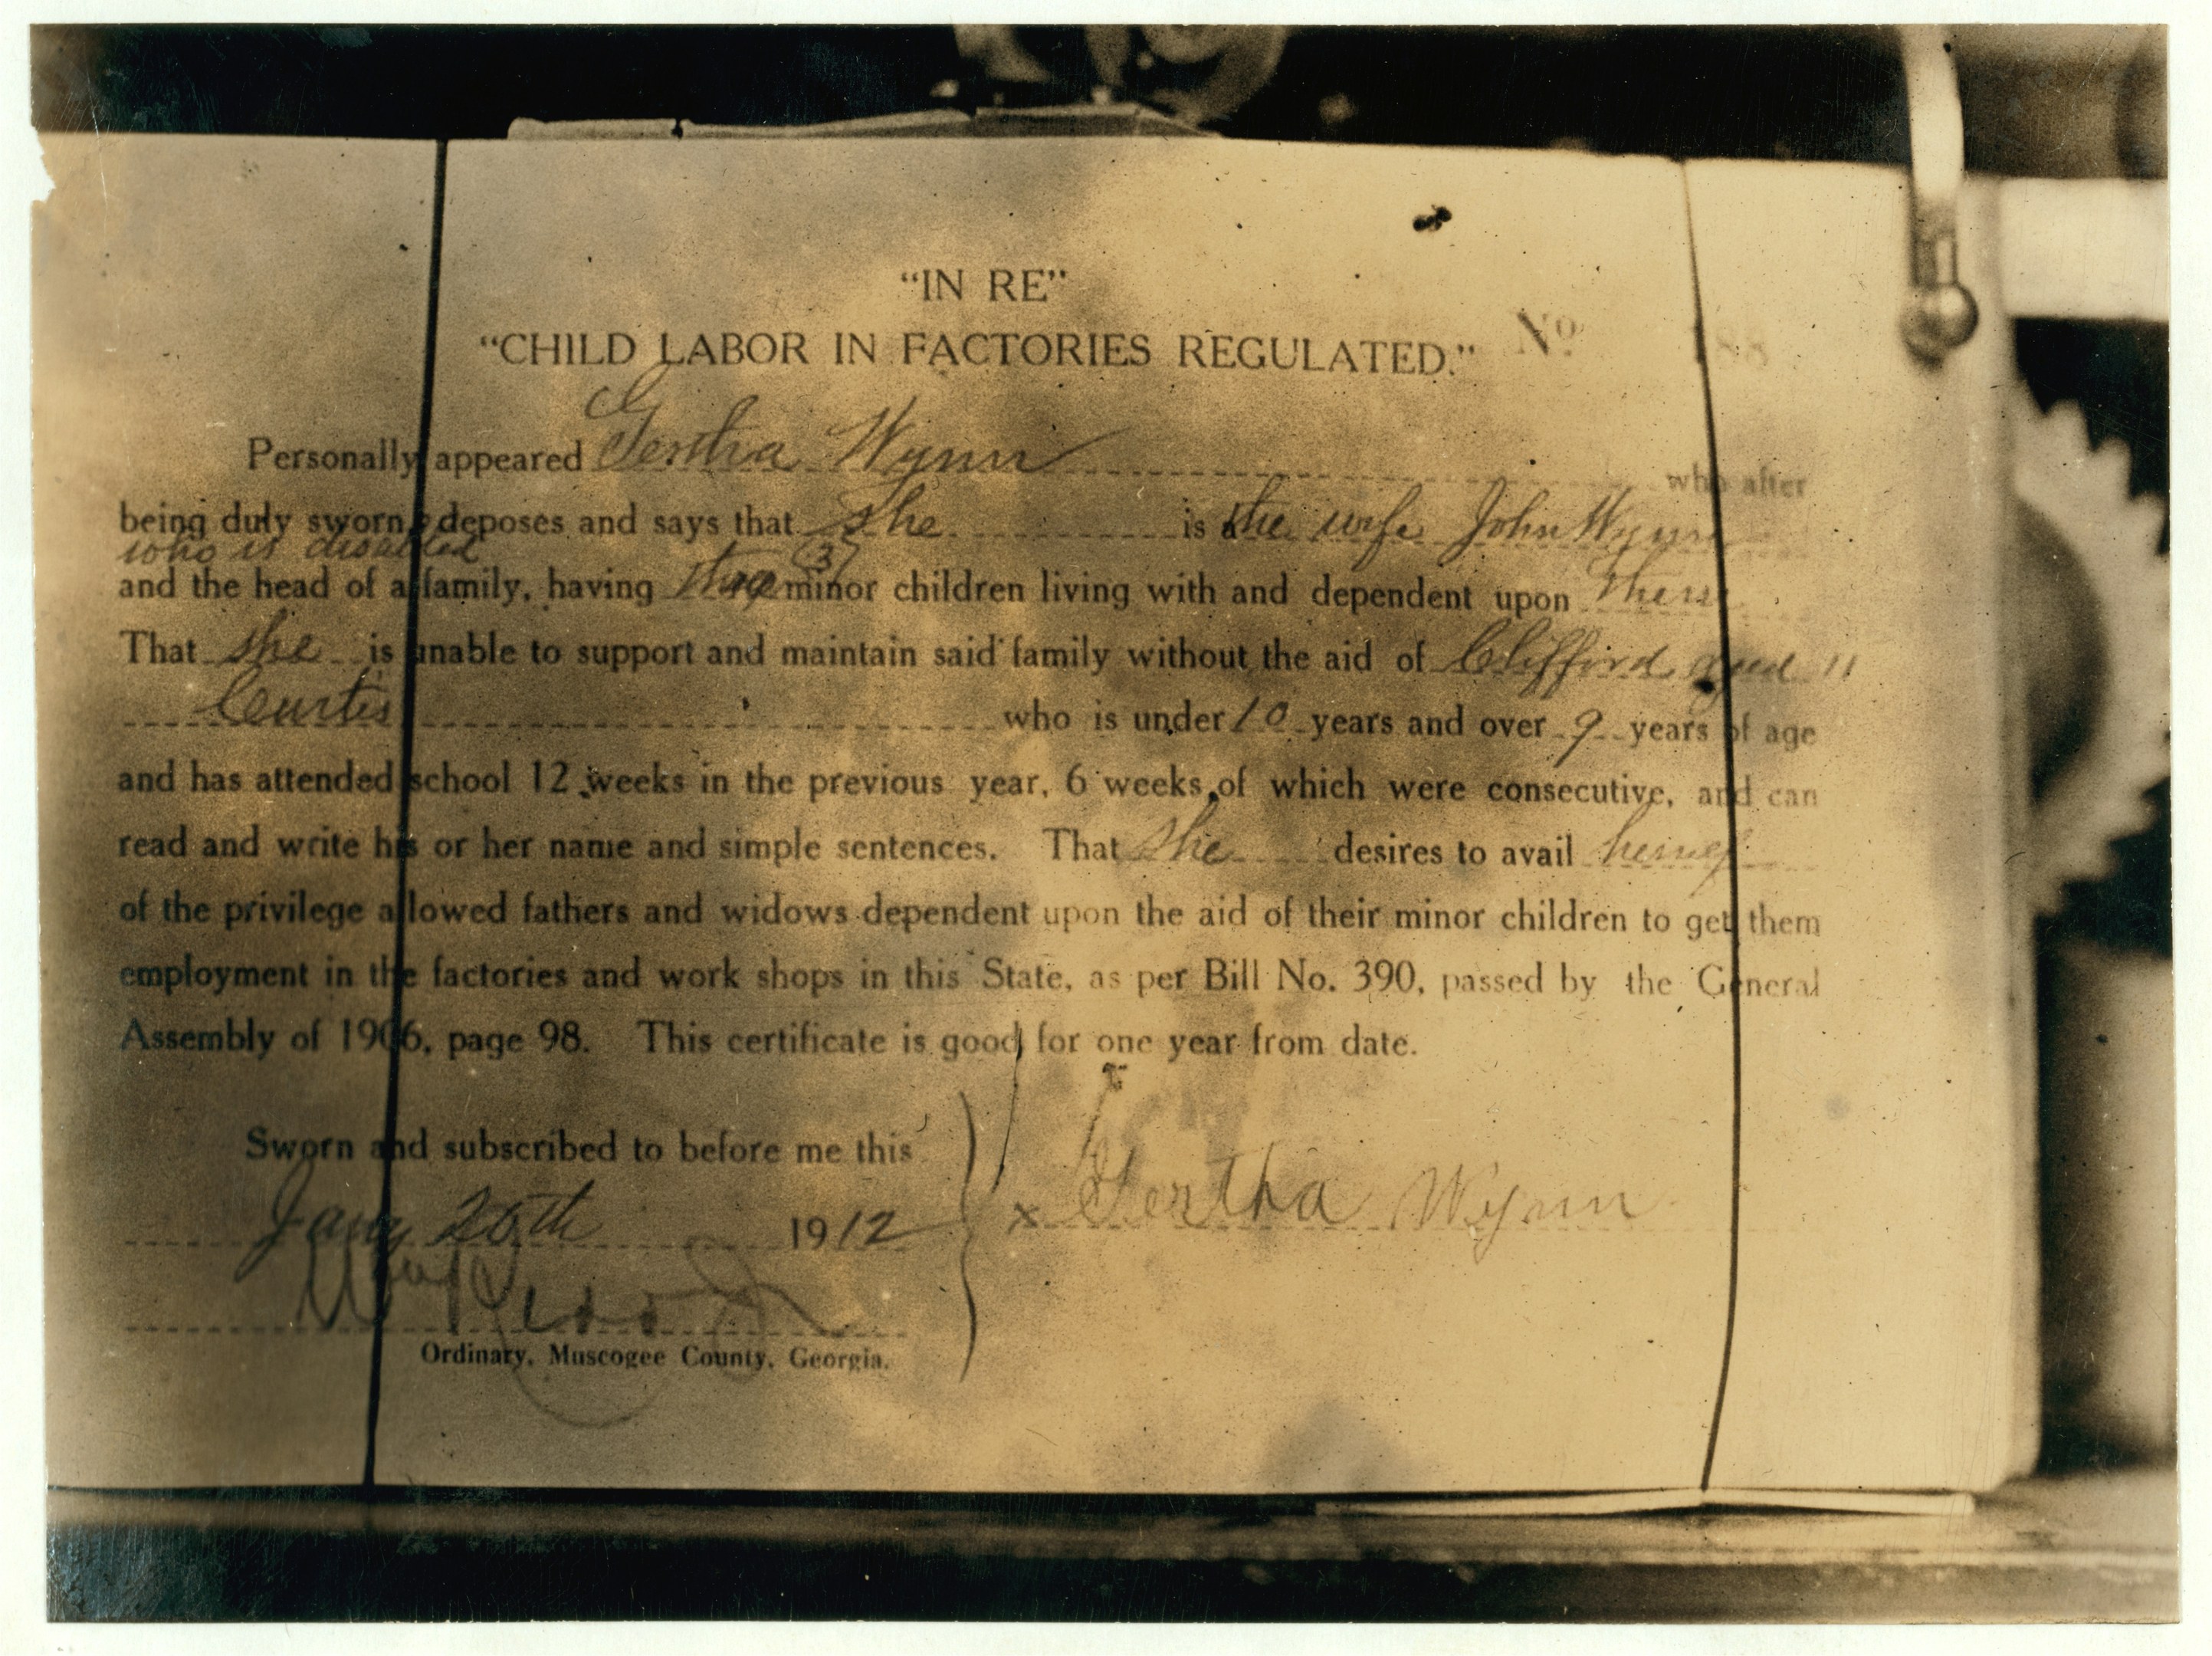 “IN RE”
“CHILD LABOR IN FACTORIES REGULATED.” No 188
Personally appeared Gertha Wynn who after
being duly sworn, deposes and says that she is the wife John Wynn
who is disabled
and the head of a family, having three (3) minor children living with and dependent upon them
That she is unable to support and maintain said family without the aid of Clifford aged 11
Curtis who is under 10 years and over 9 years of age
and has attended school 12 weeks in the previous year, 6 weeks of which were consecutive, and can
read and write his or her name and simple sentences. That she desires to avail herself
of the privilege allowed fathers and widows dependent upon the aid of their minor children to get them
employment in the factories and work shops in this State, as per Bill No. 390, passed by the General
Assembly of 1906, page 98. This certificate is good for one year from date.
Sworn and subscribed to before me this
Jany 1912 x Gertha Wynn
Ordinary, Muscogee County, Georgia.